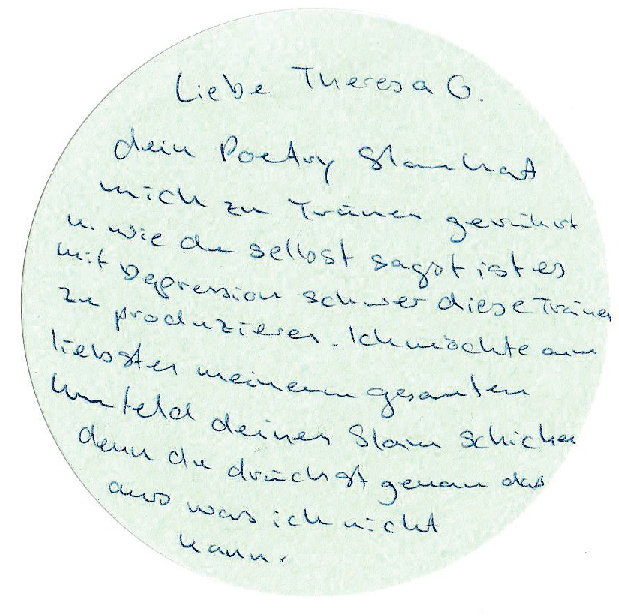 Liebe Theresa G.
dein Poetry Slam hat
mich zu Tränen gerührt
u. wie du selbst sagst ist es
mit Depression schwer diese Tränen
zu produzieren. Ich möchte am
liebsten meinem gesamten
Umfeld deinen Slam schicken
denn du drückst genau das
aus was ich nicht
kann.